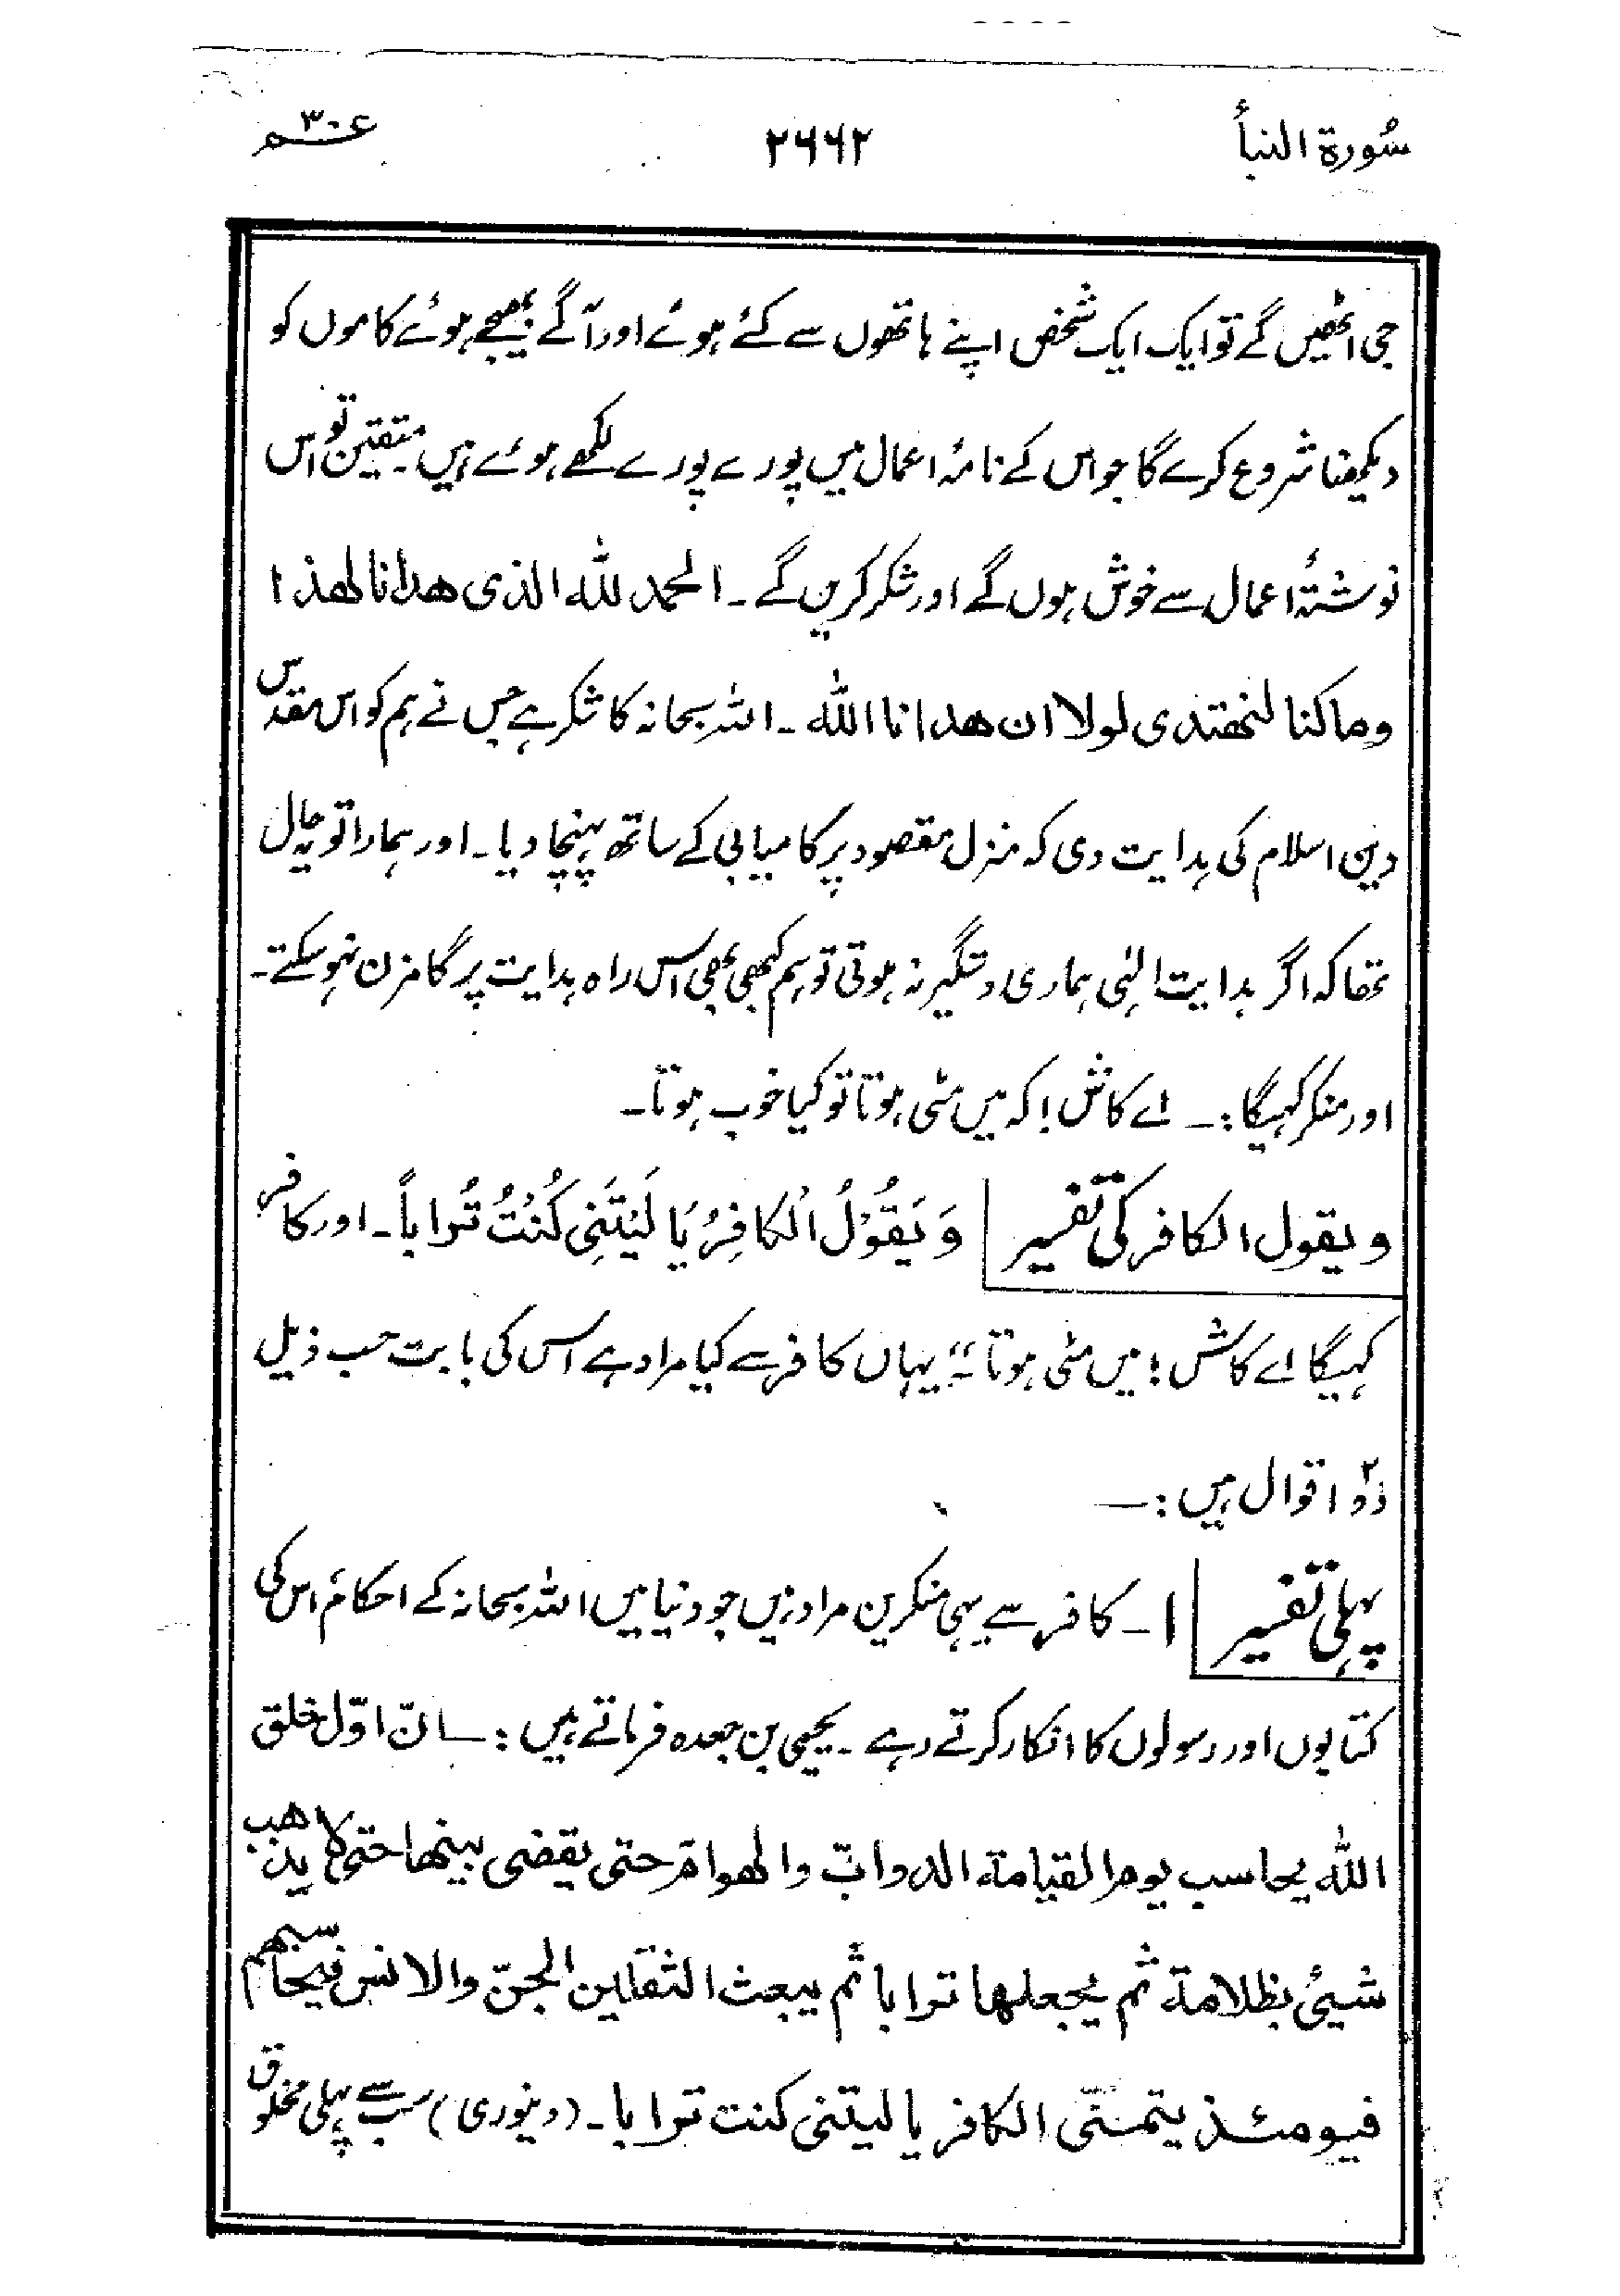 سُورة النبأ ۲۶۶۲ عم ۳۰
جی اٹھیں گے تو ایک ایک شخص اپنے ہاتھوں سے کئے ہوئے اور آگے بھیجے ہوئے کاموں کو
دیکھنا شروع کرے گا جو اس کے نامۂ اعمال میں پورے پورے لکھے ہوئے ہیں۔ متقین تو اس
نوشتۂ اعمال سے خوش ہوں گے اور شکر کریں گے۔ الحمد للہ الذی ھدانا لھذا
وما کنا لنھتدی لولا ان ھدانا اللہ۔ اللہ سبحانہ کا شکر ہے جس نے ہم کو اس مقدس
دین اسلام کی ہدایت دی کہ منزل مقصود پر کامیابی کے ساتھ پہنچا دیا۔ اور ہمارا تو یہ حال
تھا کہ اگر ہدایت الٰہی ہماری دستگیر نہ ہوتی تو ہم کبھی بھی اس راہ ہدایت پر گامزن نہو سکتے۔
اور منکر کہیگا :۔ اے کاش! کہ میں مٹی ہوتا تو کیا خوب ہوتا۔
ویقول الکافر کی تفسیر وَ یَقُوْلُ الْکَافِرُ یَا لَیْتَنِی کُنْتُ تُرَاباً۔ اور کافر
کہیگا اے کاش! میں مٹی ہوتا۔" یہاں کافر سے کیا مراد ہے اس کی بابت حسب ذیل
دو۲ اقوال ہیں :۔
پہلی تفسیر ۱۔ کافر سے یہی منکرین مراد ہیں جو دنیا میں اللہ سبحانہ کے احکام، اس کی
کتابوں اور رسولوں کا انکار کرتے رہے۔ یحیی بن جعدہ فرماتے ہیں :۔ انّ اوّل خلق
اللہ یحاسب یوم القیامة الدوابّ والھوامّ حتی یقضی بینھا حتی لا یذھب
شیئی بظلامة ثم یجعلھا ترابا ثم یبعث الثقلین الجنّ والانس فیحاسبھم
فیومئذ یتمنّی الکافر یا لیتنی کنت ترابا۔ (دینوری) سب سے پہلی مخلوق